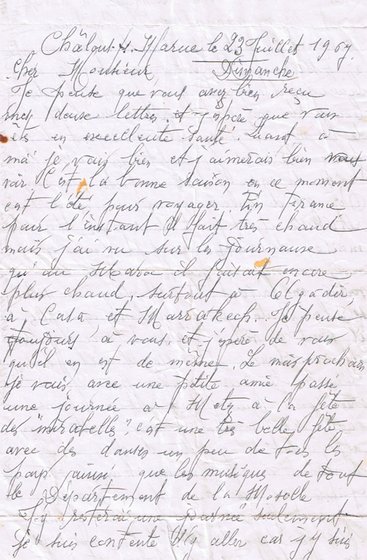 Châlout. s. Marne le 23 Juillet 1967
Cher Monsieur Dimanche
Je pense que vous avez bien recu
mes deuse lettres et j'espère que vous
ets en excellente santé, quant à
moi je vais bien et j'aimerais bien vous
voir C'est la bonne saison en ce moment
est l'été pour voyager en France
pour l'instant il fait très chaud
mais j'ai vu sur les journause
qu'au Maroc il faisait encore
plus chaud, surtout à Agadir,
à Casa et Marrakech. Je pense
toujours à vous, et j'espère de vous
qu'il en est de même. Le mois prochain
je vais avec une petite amie passé
une journée à Metz à la fête
des "mirabelles" c'est une très belle fête
avec des danses un peu de tous les
pays ainsi que les musiques de tout
le Département de la Moselle
J'y resterai une journée seulement
Je suis contente d'y aller car j'y suis